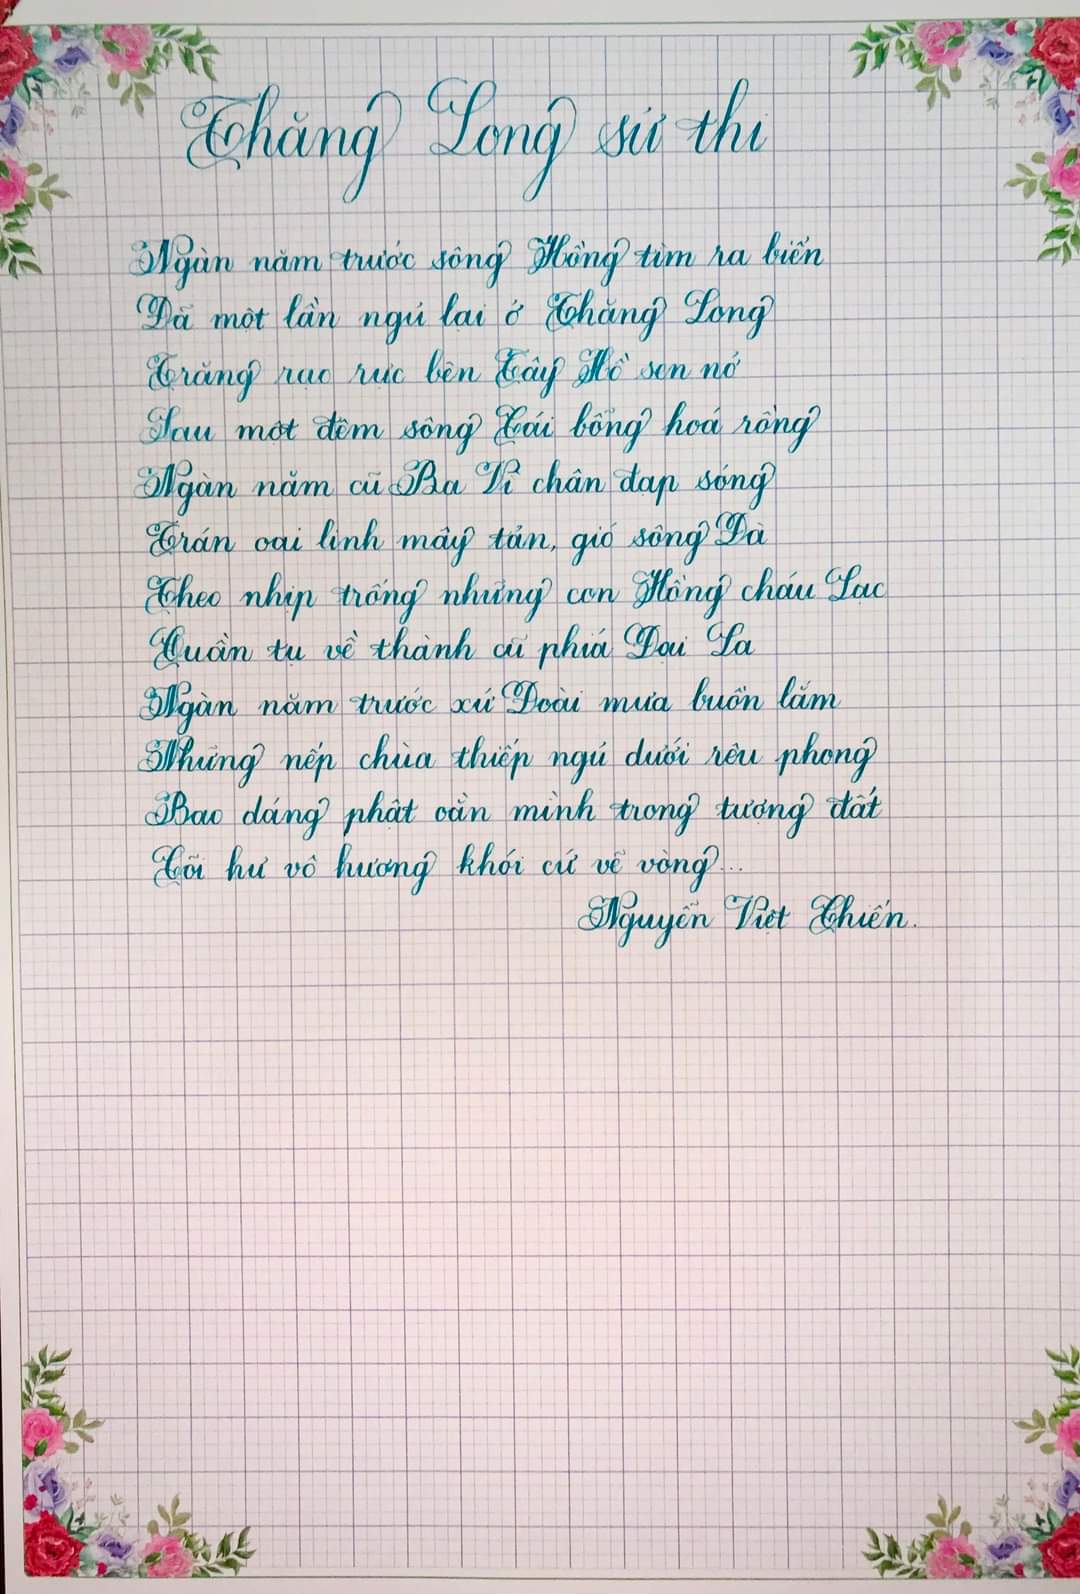 Thăng Long sử thi
Ngàn năm trước sông Hồng tìm ra biển
Đã một lần ngủ lại ở Thăng Long
Trăng rạo rực bên Tây Hồ sen nở
Sau một đêm sông Cái bỗng hoá rồng
Ngàn năm cũ Ba Vì chân đạp sóng
Trán oai linh mây tản, gió sông Đà
Theo nhịp trống những con Hồng cháu Lạc
Quần tụ về thành cũ phía Đại La
Ngàn năm trước xứ Đoài mưa buồn lắm
Những nếp chùa thiếp ngủ dưới rêu phong
Bao dáng phật oằn mình trong tượng đất
Cõi hư vô hương khói cứ vẽ vòng...
Nguyễn Việt Chiến.